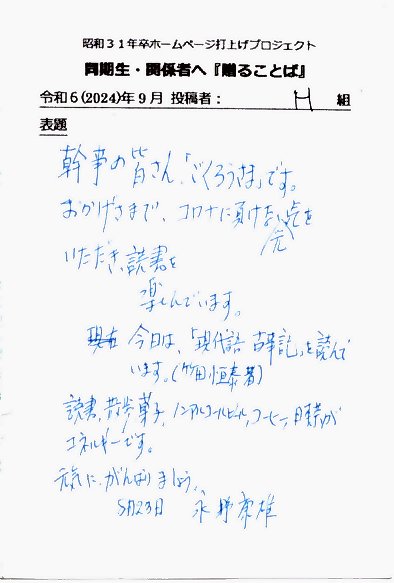 昭和31年卒ホームページ打上げプロジェクト
同期生・関係者へ『贈ることば』
令和6(2024)年9月 投稿者： H 組
表題
幹事の皆さん「ごくろうさま」です。
おかげさまで、コロナに負けない元気を
いただき、読書を
楽しんでいます。
今日は、「現代語古事記」を読んで
います。(竹田恒泰著)
読書、散歩、菓子、ノンアルコールビール、コーヒー、日本茶が
エネルギーです。
元気に、がんばりましょう。
8月23日 永野康雄